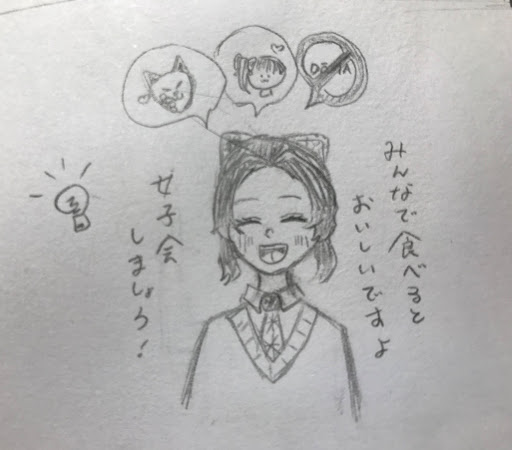 みんなで食べると
おいしいですよ
女子会
しましょう!
DOMA